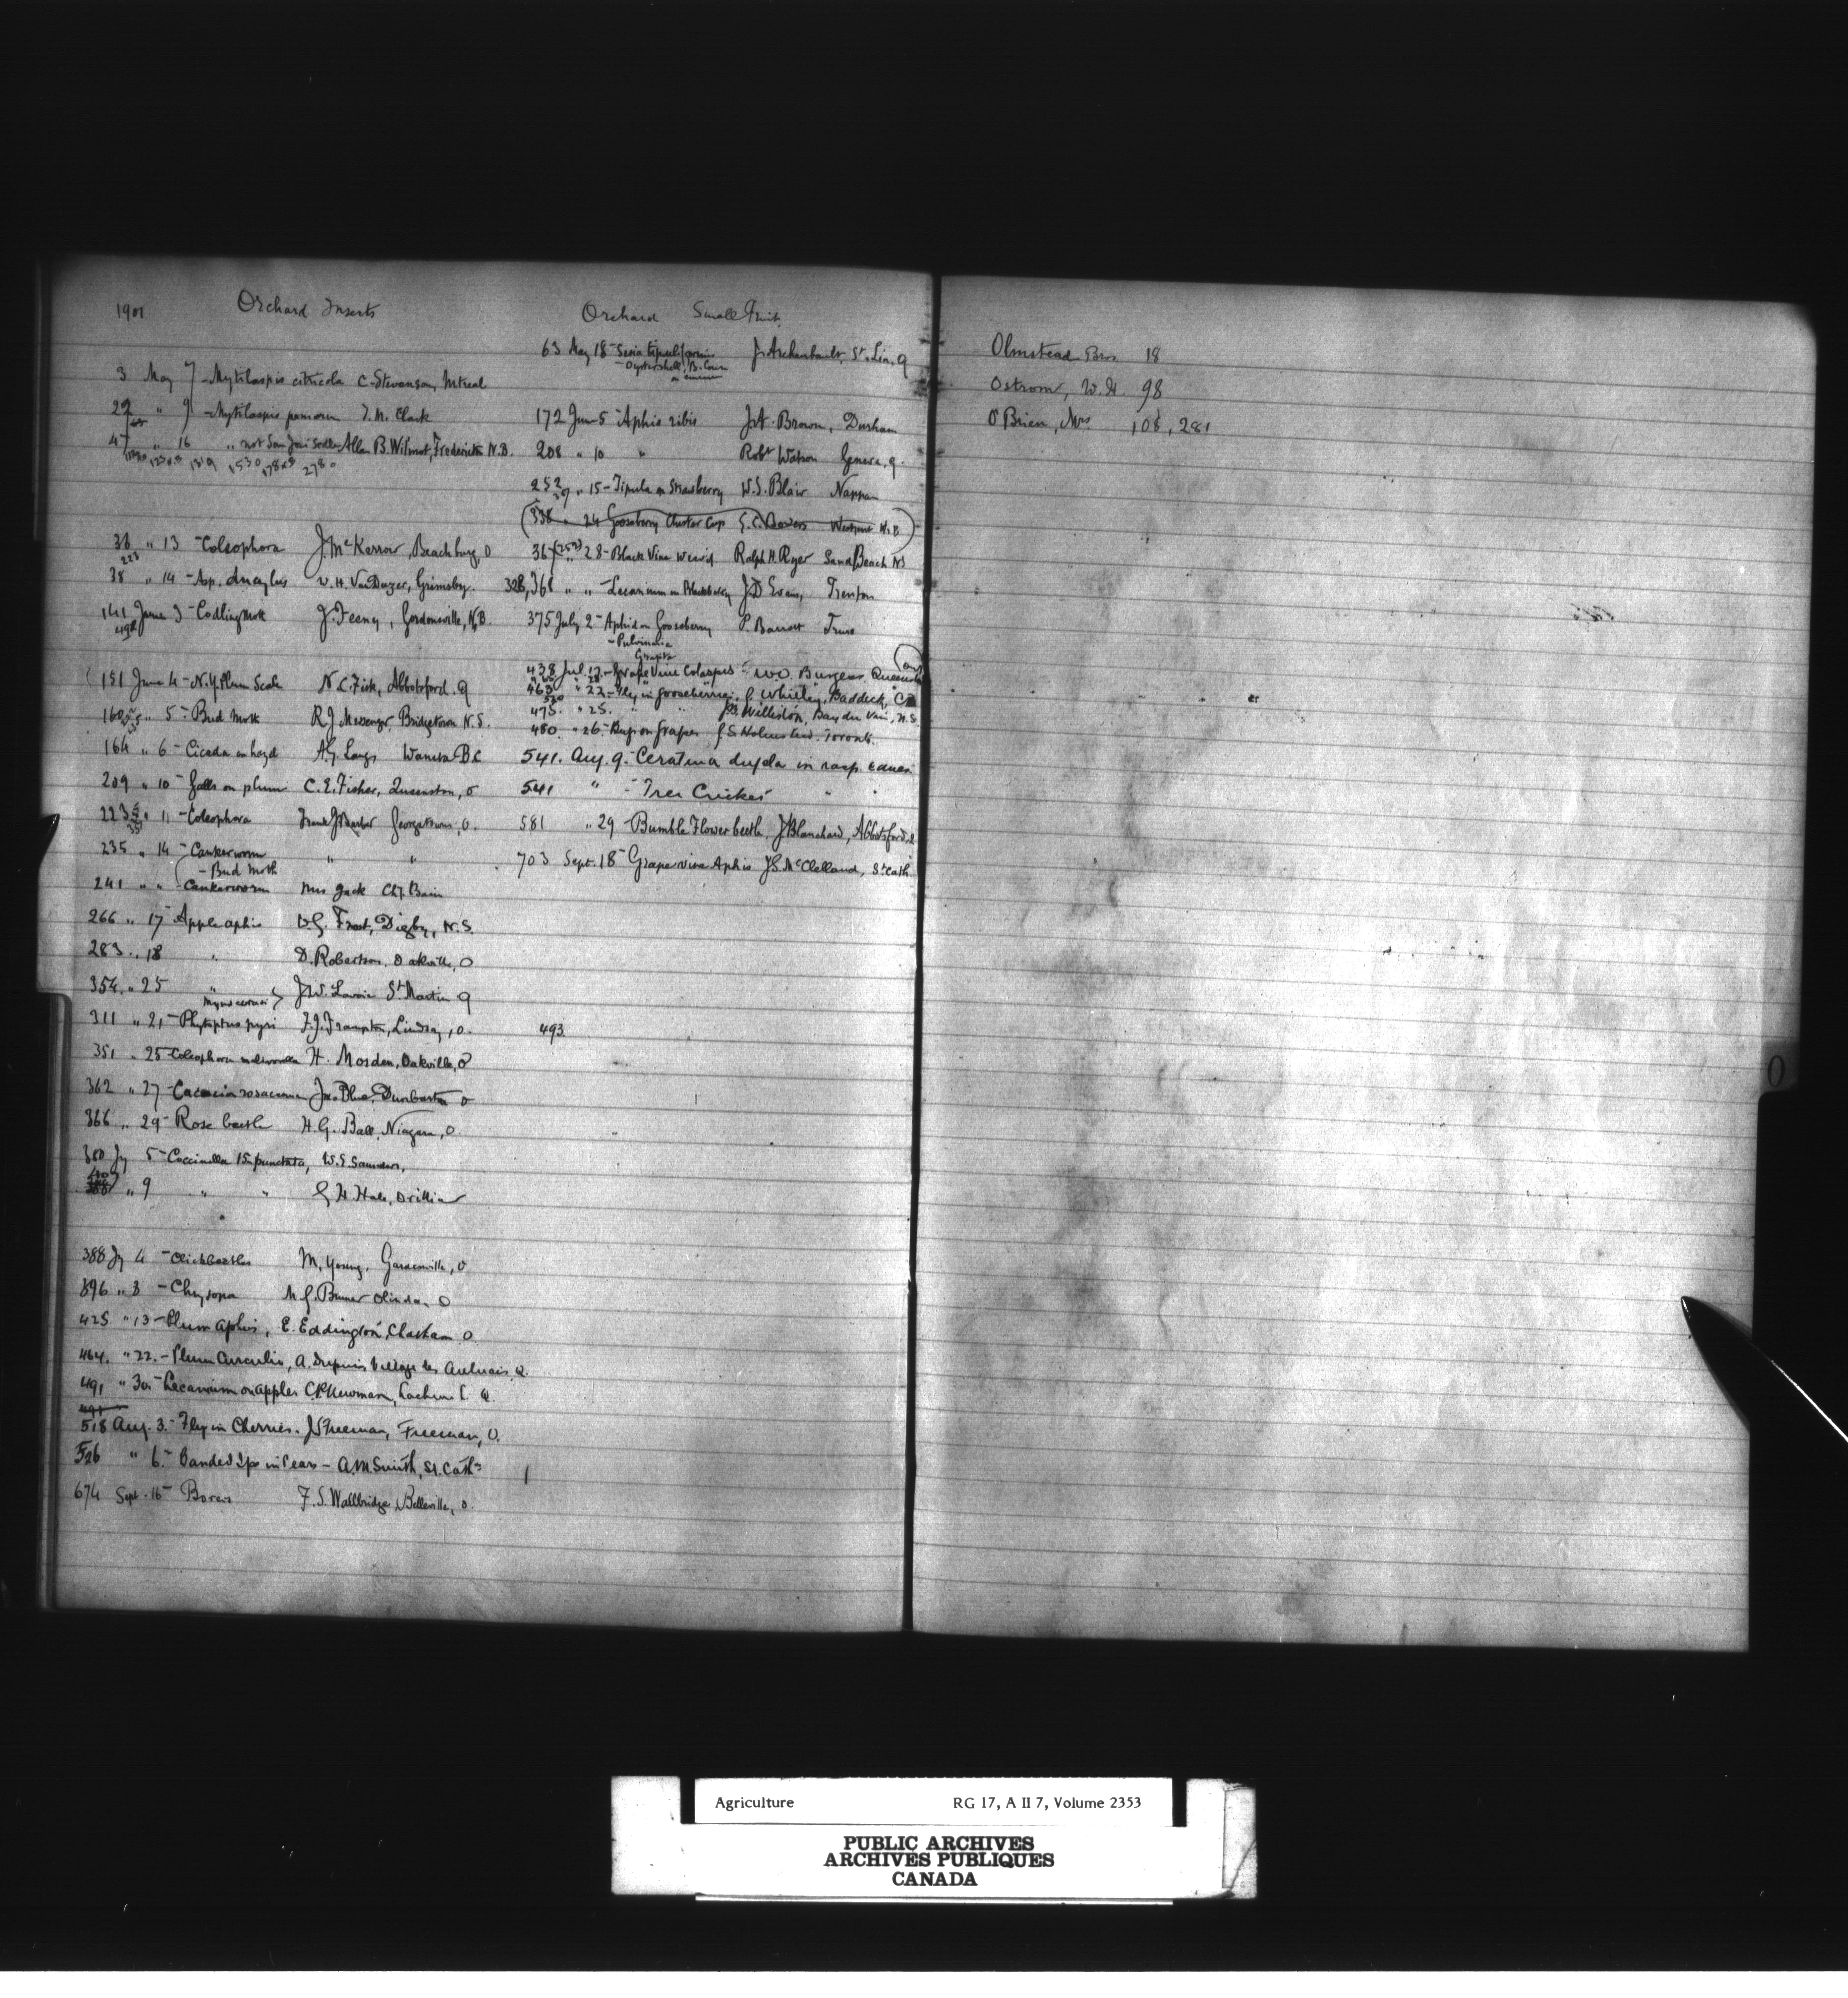 1901
Orchard Insects
3 May 7 - Mytilaspis citricola C. Stevenson, Mtreal
22 " 9 - Mytilaspis pomorum J. M. Clark
47 " 16 " not San José Scale Allan B. Wilmot, Frederickton N.B.
1319 1530 2780
36 " 13 - Coleophora J. McKerrow, Beachburg, O
38 " 14 - Asp. ancylus W. H. VanDuzer, Grimsby.
141 June 3 - Codling Moth J. Feeny, Gordonsville, N.B.
151 June 4 - N.Y. Plum Scale N. C. Fisk, Abbotsford. Q
160 " 5 - Bud Moth R. J. Messenger, Bridgetown N.S.
164 " 6 - Cicada on hazel A. G. Laugs Waneta B.C
209 " 10 - Galls on plum C. E. Fisher, Queenston, O
223 " 11 - Coleophora Frank J. Barber Georgetown, O.
235 " 14 - Cankerworm " "
- Bud Moth
241 " " - Cankerworm Mrs Jack Cht. Bain
266 " 17 - Apple aphis D. G. Frost, Digby, N.S.
283 " 18 " D. Robertson, Oakville, O
354 " 25 " J. W. Lavoie St Martin Q
311 " 21 - Phytoptus pyri F. J. Frampton, Lindsay, O.
351 " 25 - Coleophora malivorella H. Mosden, Oakville, O
362 " 27 - Cacoecia rosaceana Jno Blue, Dunbarton O
366 " 29 - Rose beetle H. G. Ball, Niagara, O.
380 Jy 5 - Coccinella 15-punctata, W. E. Saunders,
" 9 " " G. H. Hale, Orillia
388 Jy 4 - Click beetles M. Young, Gardenville, O
396 " 8 - Chrysopa M. G. Bruner Olinda, O
425 " 13 - Plum Aphis, E. Eddington, Chatham O.
464. " 22. - Plum Curculio, A. Dupuis Village des Aulnais Q.
491 " 30. - Lecanium on apples C. P. Newman, Lachine L. Q.
491
518 Aug. 3. - Fly in Cherries. J. S. Freeman, Freeman, O.
526 " 6. - Banded Ips in Pears - A. M. Smith, St. Caths
674 Sept. 16 - Borers F. S. Wallbridge, Belleville, O.
Orchard Small Fruit
63 May 18 - Sesia tipuliformis J. Archambault, St. Lin, Q
- Oyster shell, B. Louse
172 June 5 - Aphis ribis J. A. Brown, Durham
208 " 10 " Robt Watson Geneva, Q.
252 " 15 - Tipula on Strawberry W. S. Blair Nappan
(338 " 24 Gooseberry Cluster Cup G. C. Bowers Westport N.B)
367 (252) " 28 - Black Vine weevil Ralph H. Ryer Sand Beach NS
328, 368 " " - Lecanium on Blackberry J. D. Evans, Trenton
375 July 2 - Aphid on Gooseberry P. Barrett Truro
- Pulvinaria
Grapes
438 Jul 17. - Grape Vine Colaspes - W. O. Burgess. Queenston
463 " 22 - Fly in gooseberries. C. Whitley, Baddeck, CB
475. " 25. " " J. B. Williston, Bay du Vin, N.B
480. " 26. - Bug on grapes J. S. Holmsted. Toronto.
541. Aug. 9. - Ceratina dupla in rasp. canes
541 " - Tree Cricket "
581 " 29 - Bumble Flower beetle, J. Blanchard, Abbotsford, Q
703 Sept. 18 - Grape vine Aphis J. S. McClelland, St Cath.
493
Olmstead Bros 18
Ostrom, W. H. 98
O'Brien, Mrs 108, 281
O
Agriculture RG 17, A II 7, Volume 2353
PUBLIC ARCHIVES
ARCHIVES PUBLIQUES
CANADA